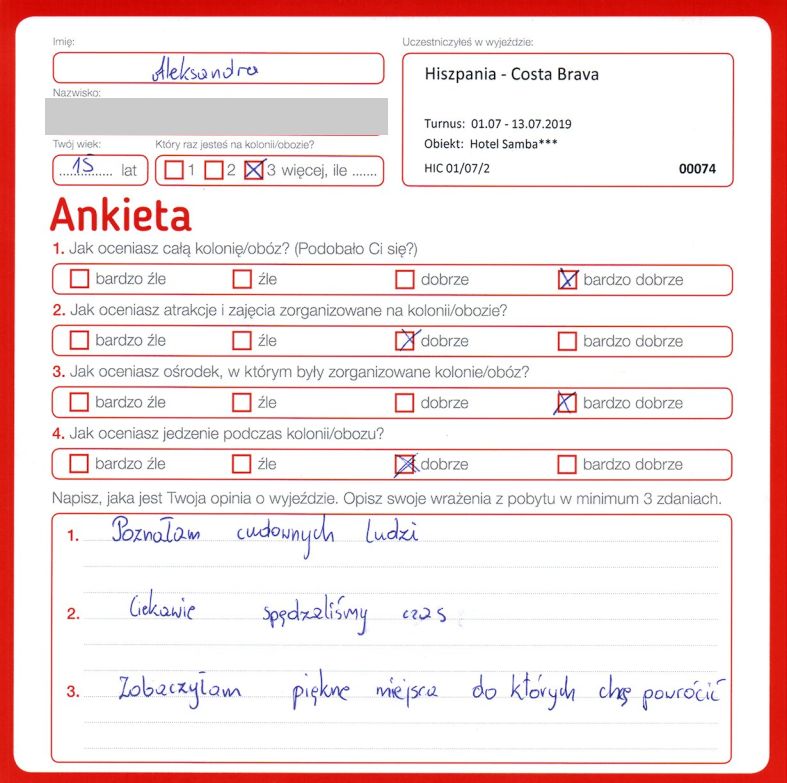 Imię:
Aleksandra
Nazwisko:
Twój wiek:
15 lat
Który raz jesteś na kolonii/obozie?
1 2 3 więcej, ile .......
Uczestniczyłeś w wyjeździe:
Hiszpania - Costa Brava
Turnus: 01.07 - 13.07.2019
Obiekt: Hotel Samba***
HIC 01/07/2 00074
Ankieta
1. Jak oceniasz całą kolonię/obóz? (Podobało Ci się?)
bardzo źle źle dobrze bardzo dobrze
2. Jak oceniasz atrakcje i zajęcia zorganizowane na kolonii/obozie?
bardzo źle źle dobrze bardzo dobrze
3. Jak oceniasz ośrodek, w którym były zorganizowane kolonie/obóz?
bardzo źle źle dobrze bardzo dobrze
4. Jak oceniasz jedzenie podczas kolonii/obozu?
bardzo źle źle dobrze bardzo dobrze
Napisz, jaka jest Twoja opinia o wyjeździe. Opisz swoje wrażenia z pobytu w minimum 3 zdaniach.
1. Poznałam cudownych ludzi
2. Ciekawie spędzaliśmy czas
3. Zobaczyłam piękne miejsca do których chcę powrócić